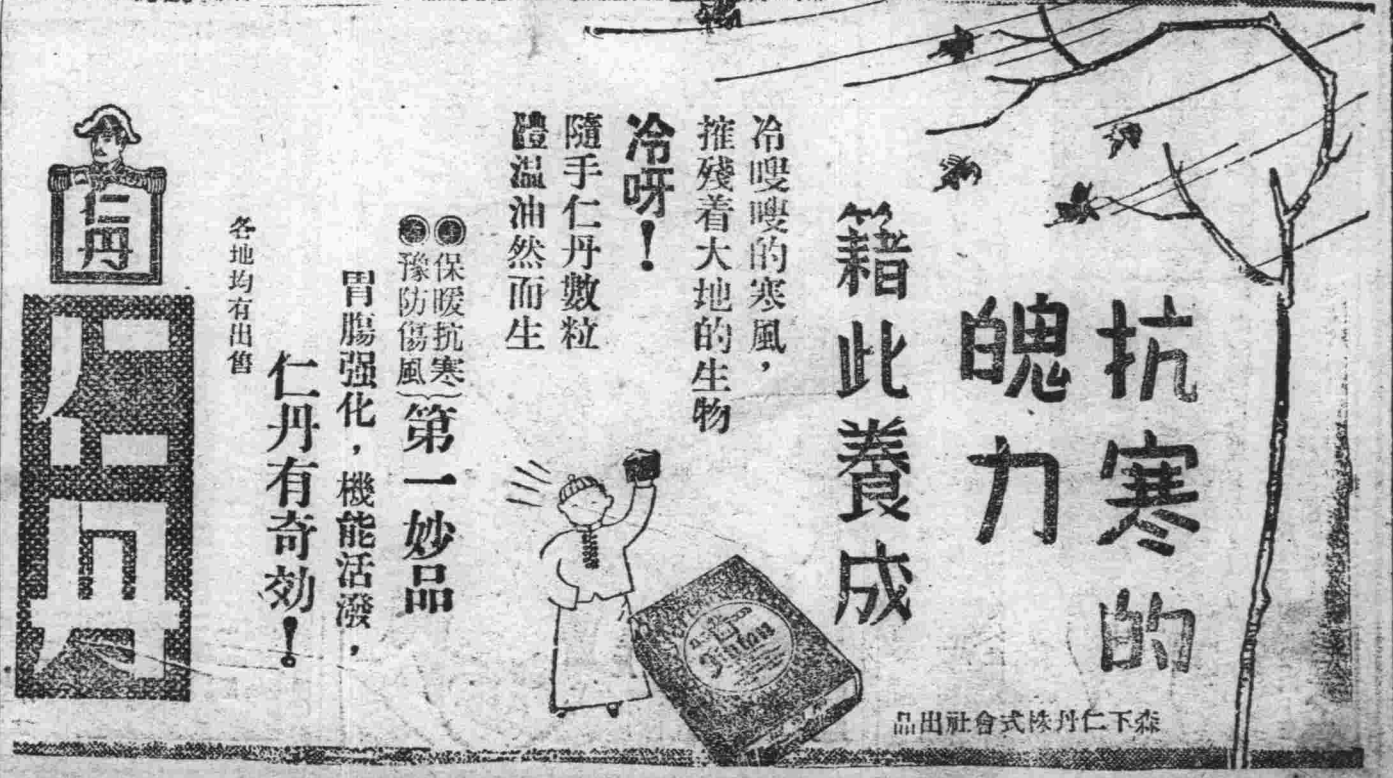 抗寒的
魄力
籍此養成
冷嗖嗖的寒風，
摧殘着大地的生物
冷呀！
隨手仁丹數粒
體溫油然而生
保暖抗寒
豫防傷風
第一妙品
胃腸强化，機能活潑，
仁丹有奇効！
各地均有出售
仁丹
仁丹
森下仁丹株式會社出品